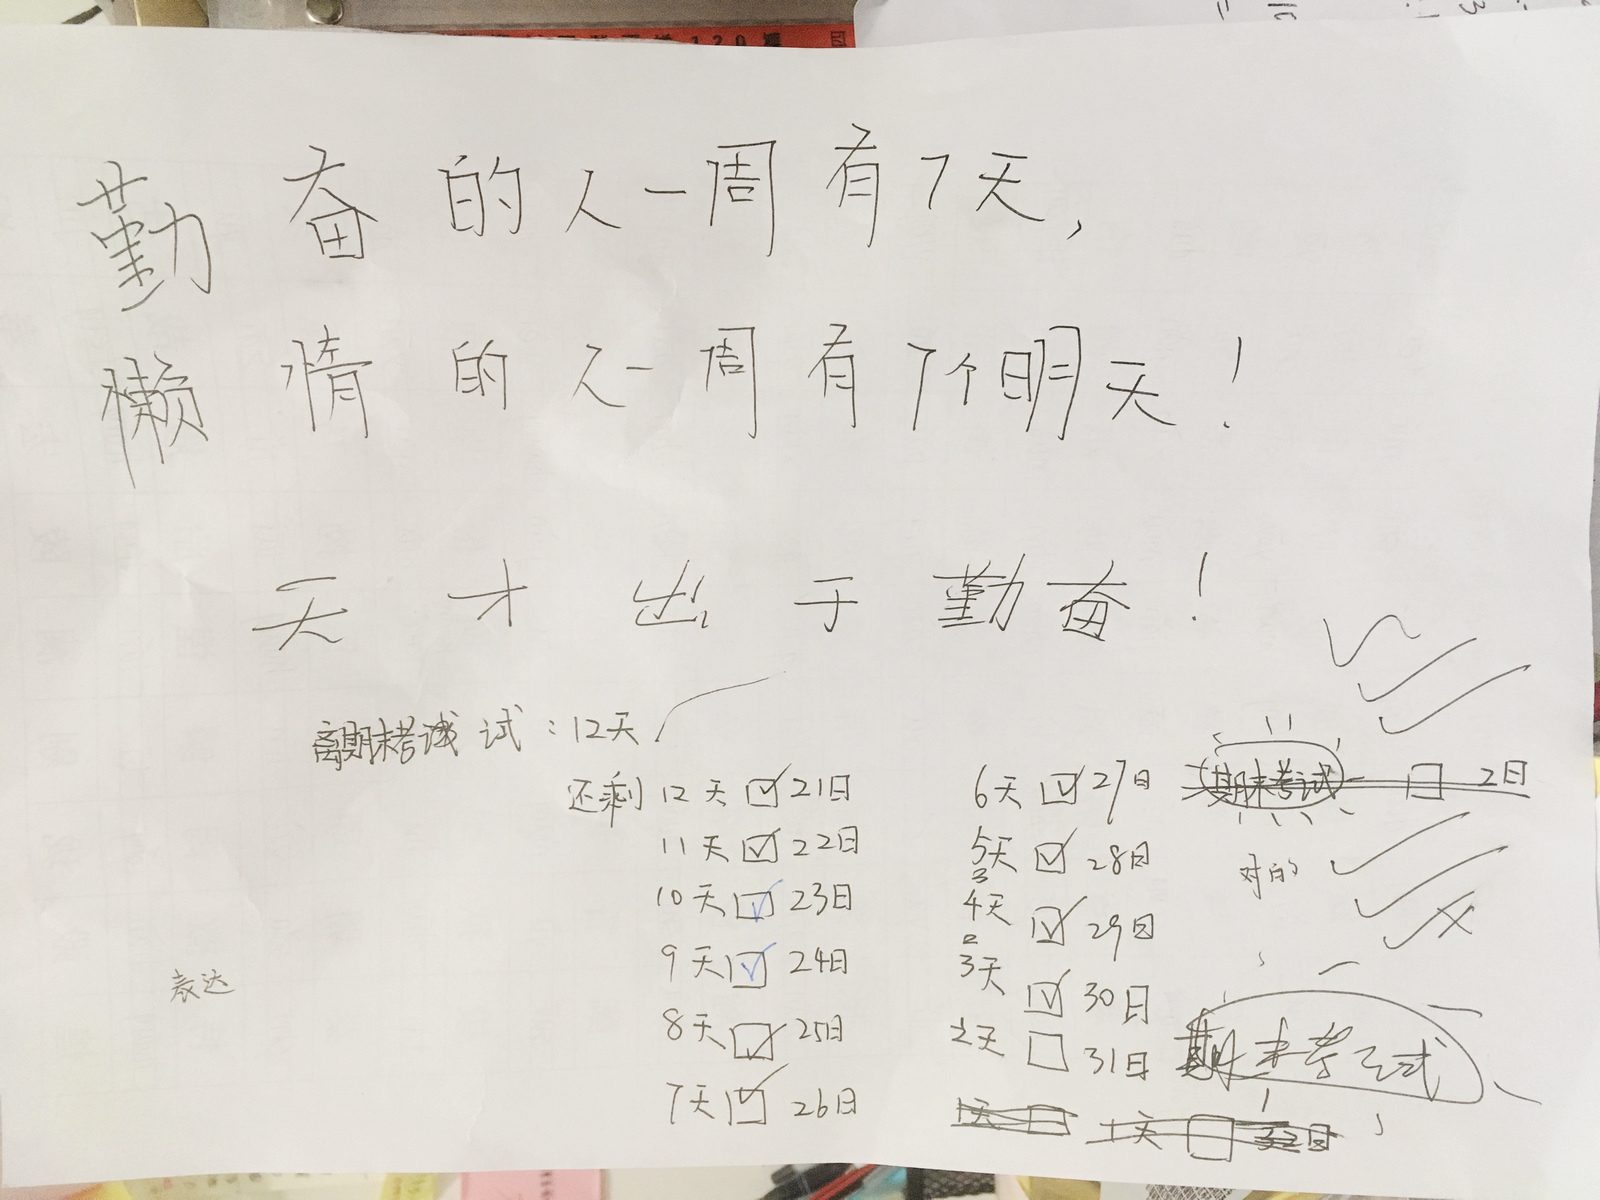 勤奋的人一周有7天,
懒惰的人一周有7个明天!
天才出于勤奋!
离期末考试试:12天
还剩12天☑21日
11天☑22日
10天☑23日
9天☑24日
8天☑25日
7天☑26日
6天☑27日
5天☑28日
3
4天☑29日
2
3天☑30日
天□31日
1天□ 1天□32日
期末考试 □ 2日
对的
期末考试
表达
120